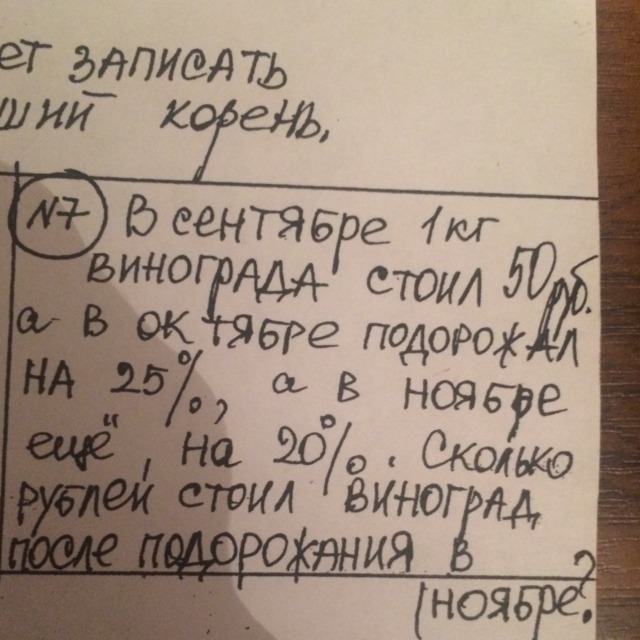 ет записать
ший корень.
№7 В сентябре 1 кг
винограда стоил 50 руб.
а в октябре подорожал
на 25%, а в ноябре
ещё, на 20%. Сколько
рублей стоил виноград
после подорожания в
ноябре?